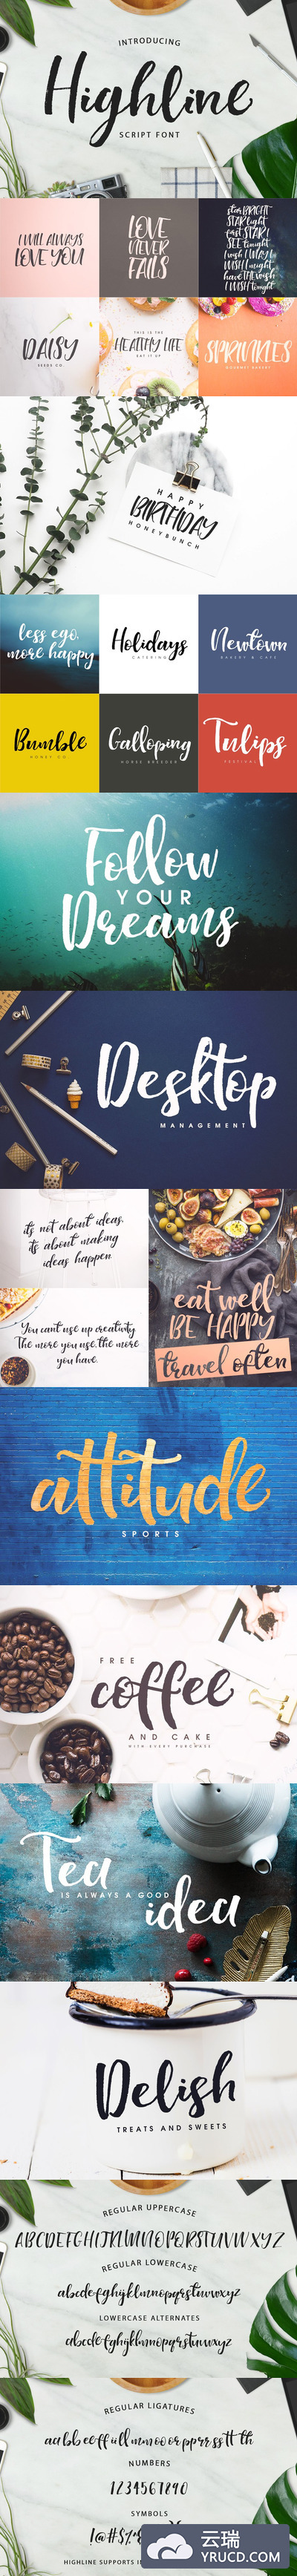 INTRODUCING
Highline
SCRIPT FONT
I WILL ALWAYS
LOVE YOU
LOVE
NEVER
FAILS
star BRIGHT
STAR light
first STAR I
SEE tonight
I wish I MAY I
WISH I might
have the wish
I WISH tonight
DAISY
SEEDS CO.
THIS IS THE
HEALTHY LIFE
EAT IT UP
SPRINKLES
GOURMET BAKERY
HAPPY
BIRTHDAY
HONEYBUNCH
less ego,
more happy
Holidays
CATERING
Newtown
BAKERY & CAFE
Bumble
HONEY CO.
Galloping
HORSE BREEDER
Tulips
FESTIVAL
Follow
YOUR
Dreams
Desktop
MANAGEMENT
it's not about ideas.
its about making
ideas happen.
You can't use up creativity.
The more you use, the more
you have.
eat well
BE HAPPY
travel often
attitude
SPORTS
FREE
coffee
AND CAKE
WITH EVERY PURCHASE
Tea
IS ALWAYS A GOOD
idea
Delish
TREATS AND SWEETS
REGULAR UPPERCASE
ABCDEFGHIJKLMNOPQRSTUVWXYZ
REGULAR LOWERCASE
abcdefghijklmnopqrstuvwxyz
LOWERCASE ALTERNATES
abcdefghijklmnopqrstuvwxyz
REGULAR LIGATURES
aa bb ee ff ii ll mm oo or pp rr ss tt th
NUMBERS
1234567890
SYMBOLS
!@#$%
HIGHLINE SUPPORTS
云瑞
YRUCD.COM